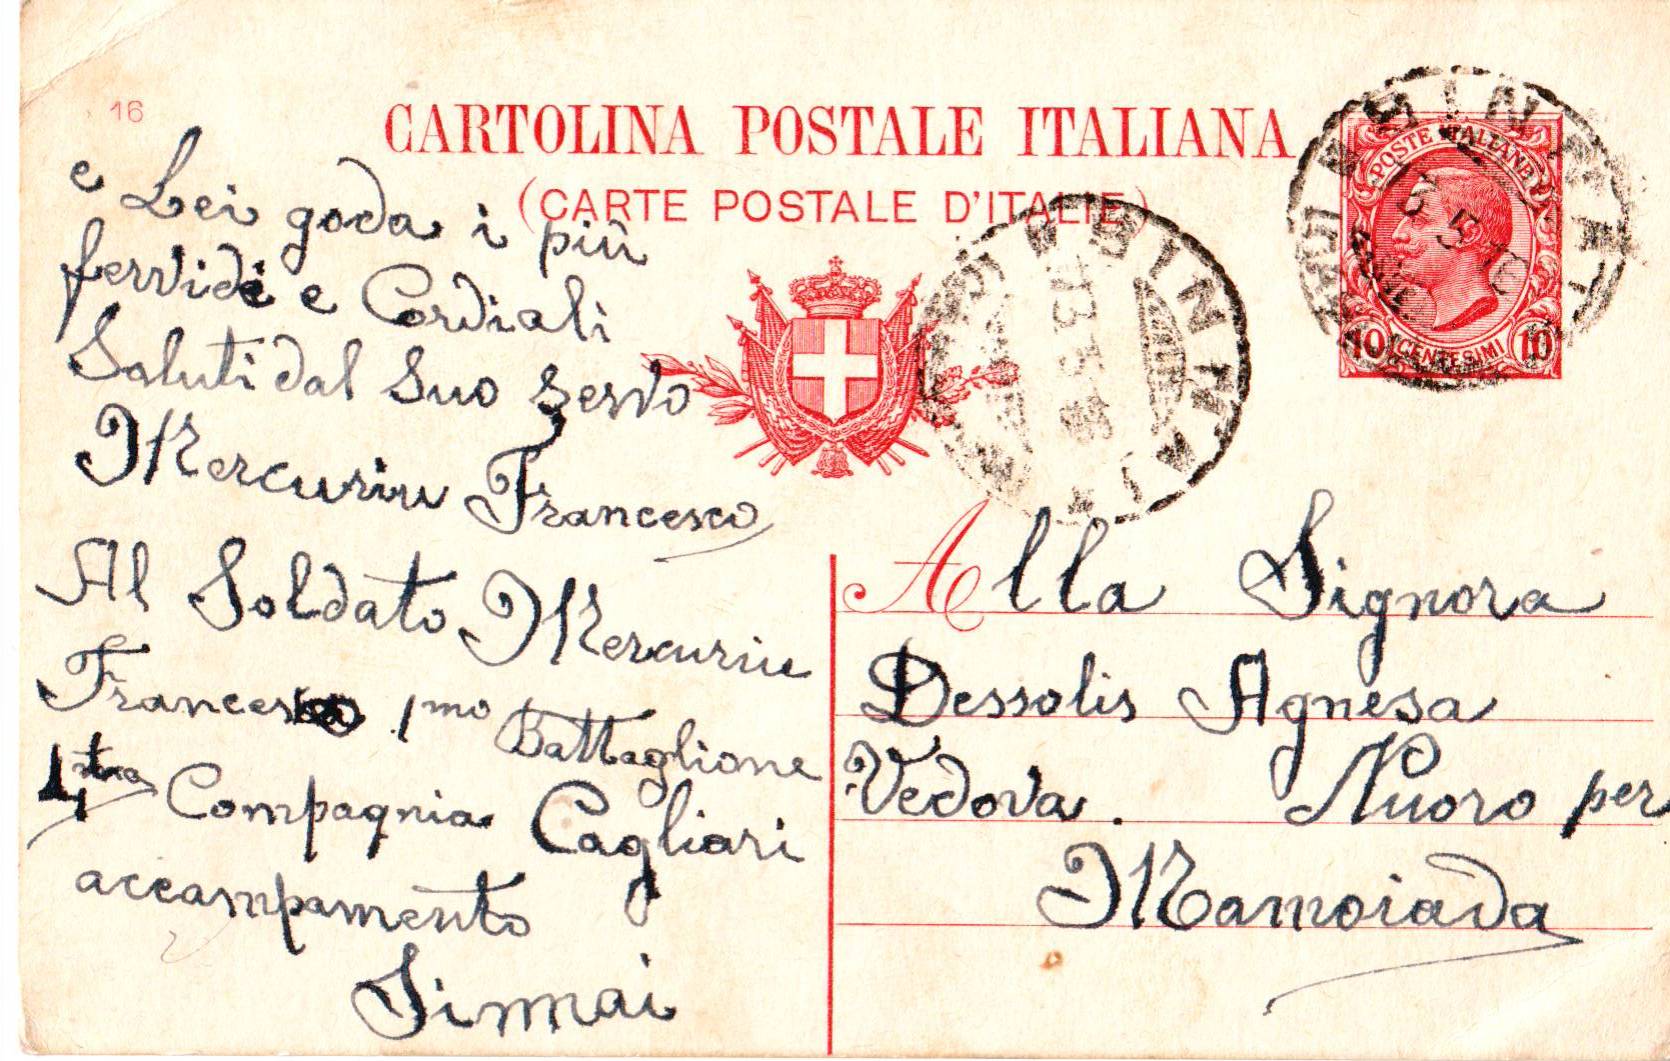 16
CARTOLINA POSTALE ITALIANA
(CARTE POSTALE D'ITALIE)
POSTE ITALIANE
10 CENTESIMI 10
SINNAI
13 5 16
e Lei goda i più
fervidi e Cordiali
Saluti dal Suo servo
Mercuriu Francesco
Al Soldato Mercuriu
Francesco 1mo Battaglione
Compagnia Cagliari
accampamento
Sinnai
Alla Signora
Dessolis Agnesa
Vedova. Nuoro per
Mamoiada